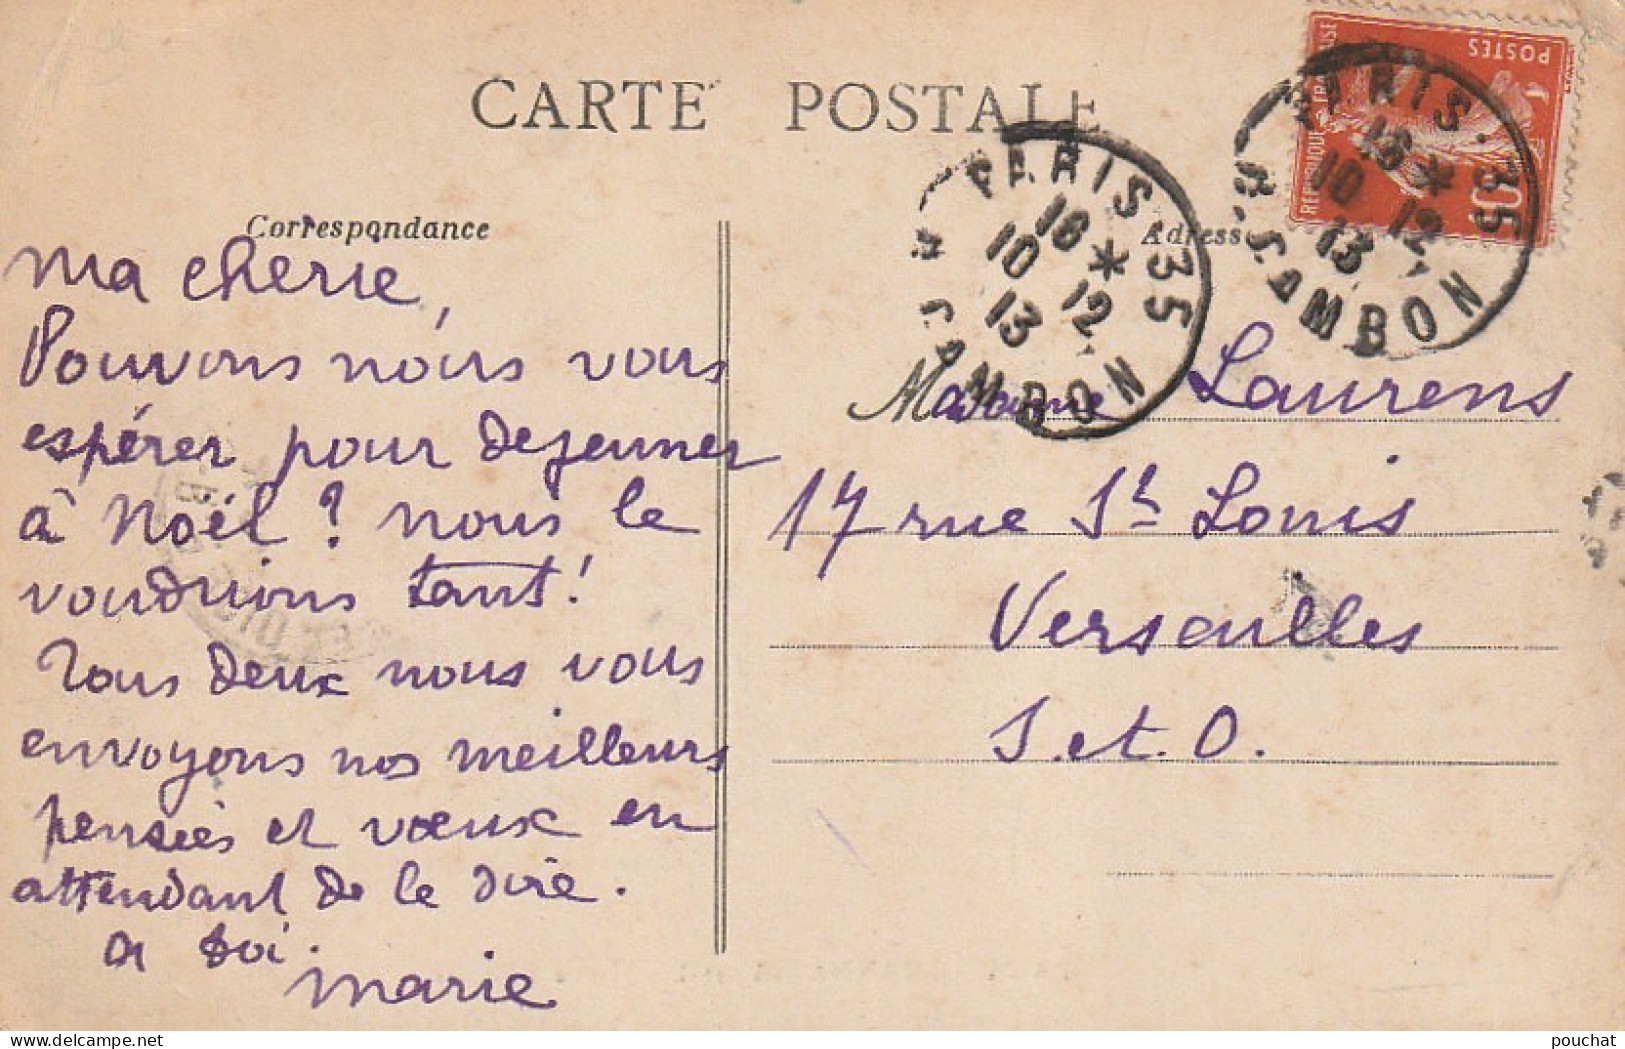 CARTE POSTALE
Correspondance
Ma cherie,
Pouvons nous vous
espérer pour dejeuner
à Noël ? nous le
voudrions tant !
Tous deux nous vous
envoyons nos meilleurs
pensées et vœux en
attendant de le dire.
à toi.
Marie
Adresse
Madame Laurens
17 rue St Louis
Versailles
S. et. O.
PARIS. 35
16 *
10 12
13
R. CAMBON
PARIS. 35
16 *
10 12
13
R. CAMBON
REPUBLIQUE FRANÇAISE
POSTES
10
pouchat